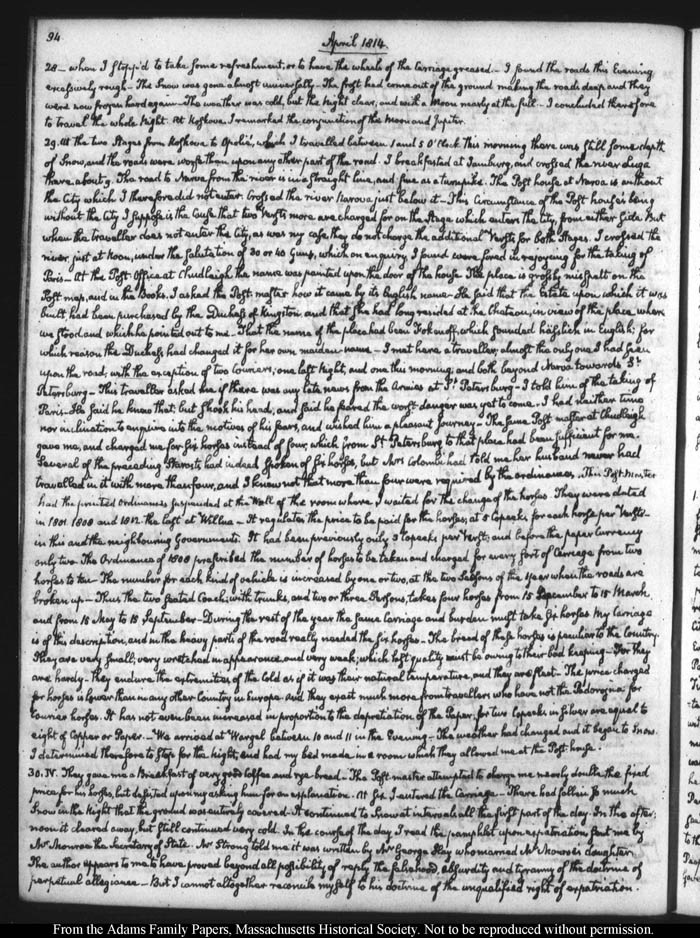 94
April 1814.
28 — when I stopp'd to take some refreshment, or to have the wheels of the Carriage greased — I found the roads this Evening
excessively rough — The Snow was gone almost universally — The frost had come out of the ground making the roads deep and they
were now frozen hard again — The weather was cold, but the Night clear, and with a Moon nearly at the full — I concluded therefore
to travel the whole Night. At Koskova I remarked the conjunction of the Moon and Jupiter.
29. At the two Stages from Koskova to Opolie, which I travelled between 1 and 5 O'Clock this morning there was still some depth
of Snow, and the roads were worse than upon any other part of the road. I breakfasted at Jamburg, and crossed the river Luga
there about 9. The road to Narva from the river is in a straight line, and fine as a turnpike. The Post house at Narva is without
the City which I therefore did not enter. Crossed the river Narova just below it — This Circumstance of the Post house's being
without the City I suppose is the Cause that two Versts more are charged for on the Stage which enters the City, from either side. But
when the traveller does not enter the City, as was my case, they do not charge the additional Versts for both Stages. I crossed the
river just at Noon, under the Salutation of 30 or 40 Guns, which on enquiry, I found were fired in rejoycing for the taking of
Paris — At the Post-Office at Chudleigh the name was painted upon the door of the house. The place is grossly misspelt on the
Post map, and in the Books. I asked the Post-master how it came by its English name — He said that the Estate upon which it was
built, had been purchased by the Dutchess of Kingston, and that she had long resided at the Chateau, in view of the place where
we stood and which he pointed out to me — That the name of the place had been Fokenoff, which sounded hässlich in English; for
which reason the Duchess had changed it for her own maiden name — I met here a traveller; almost the only one I had seen
upon the road, with the exception of two Couriers, one last Night, and one this morning, and both beyond Narva towards St.
Petersburg — This traveller asked me if there was any late news from the Armies at St. Petersburg — I told him of the taking of
Paris — He said he knew that; but shook his head, and said he feared the worst danger was yet to come. I had neither time
nor inclination to enquire into the motives of his fears, and wished him a pleasant journey — The same Post-master at Chudleigh
gave me, and charged me for six horses instead of four, which from St. Petersburg to that place had been sufficient for me.
Several of the preceding Starosts had indeed spoken of six horses, but Mrs Colombi had told me her husband never had
travelled in it with more than four, and I knew not that more than four were required by the ordinances. This Post-Master
had the printed Ordinances suspended at the Wall of the room where I waited for the change of the horses. They were dated
in 1801. 1808 and 1812 the last at Willna — It regulates the price to be paid for the horses, at 5 Copeeks for each horse per Verst —
in this and the neighbouring Governments. It had been previously only 3 Copeeks per Verst; and before the paper Currency
only two. The Ordinance of 1808 prescribed the number of horses to be taken and charged for every sort of Carriage from two
horses to ten — The number for each kind of vehicle is increased by one or two, at the two Seasons of the Year when the roads are
broken up — Thus the two seated Coach, with trunks, and two or three Persons, takes four horses from 15 December to 15 March
and from 15 May to 15 September — During the rest of the year the same Carriage and burden must take six horses. My Carriage
is of this description, and in the heavy parts of the road really needed the six horses — The breed of these horses is peculiar to the Country.
They are very small; very wretched in appearance, and very weak; which last quality must be owing to their bad keeping — For they
are hardy — they endure the extremities of the Cold as if it was their natural temperature, and they are fleet — The price charged
for horses is lower than in any other Country in Europe and they exact much more from travellers who have not the Podorojna: for
Courier horses. It has not even been increased in proportion to the depretiation of the Paper, for two Copeeks in silver are equal to
eight of Copper or Paper. — We arrived at Wargel between 10 and 11 in the Evening — The weather had changed and it began to Snow.
I determined therefore to Stop for the night, and had my bed made in a room which they allowed me at the Post house.
30. IV. They gave me a Breakfast of very good Coffee and rye-bread — The Post-master attempted to charge me nearly double the fixed
price for his horses, but desisted upon my asking him for an explanation. At Six I entered the Carriage — There had fallen so much
Snow in the Night that the ground was entirely covered — It continued to Snow at intervals all the first part of the day. In the after-
noon it cleared away, but still continued very cold. In the course of the day I read the pamphlet upon expatriation sent me by
Mr Monroe the Secretary of State. Mr Strong told me it was written by Mr George Hay who married Mr Monroe's daughter
The author appears to me to have proved beyond all possibility of reply the falsehood, absurdity and tyranny of the doctrine of
perpetual allegiance — But I cannot altogether reconcile myself to his doctrine of the unqualified right of expatriation.
From the Adams Family Papers, Massachusetts Historical Society. Not to be reproduced without permission.